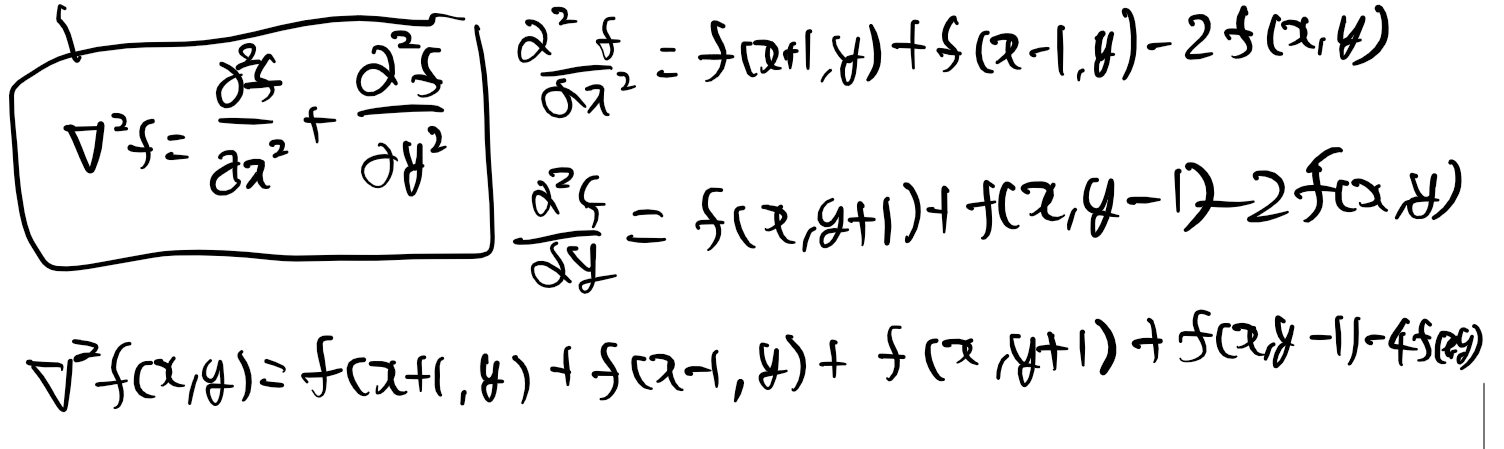 ∇²f = ∂²f/∂x² + ∂²f/∂y²
∂²f/∂x² = f(x+1,y) + f(x-1,y) - 2f(x,y)
∂²f/∂y = f(x,y+1) + f(x,y-1) - 2f(x,y)
∇²f(x,y) = f(x+1,y) + f(x-1,y) + f(x,y+1) + f(x,y-1) - 4f(x,y)